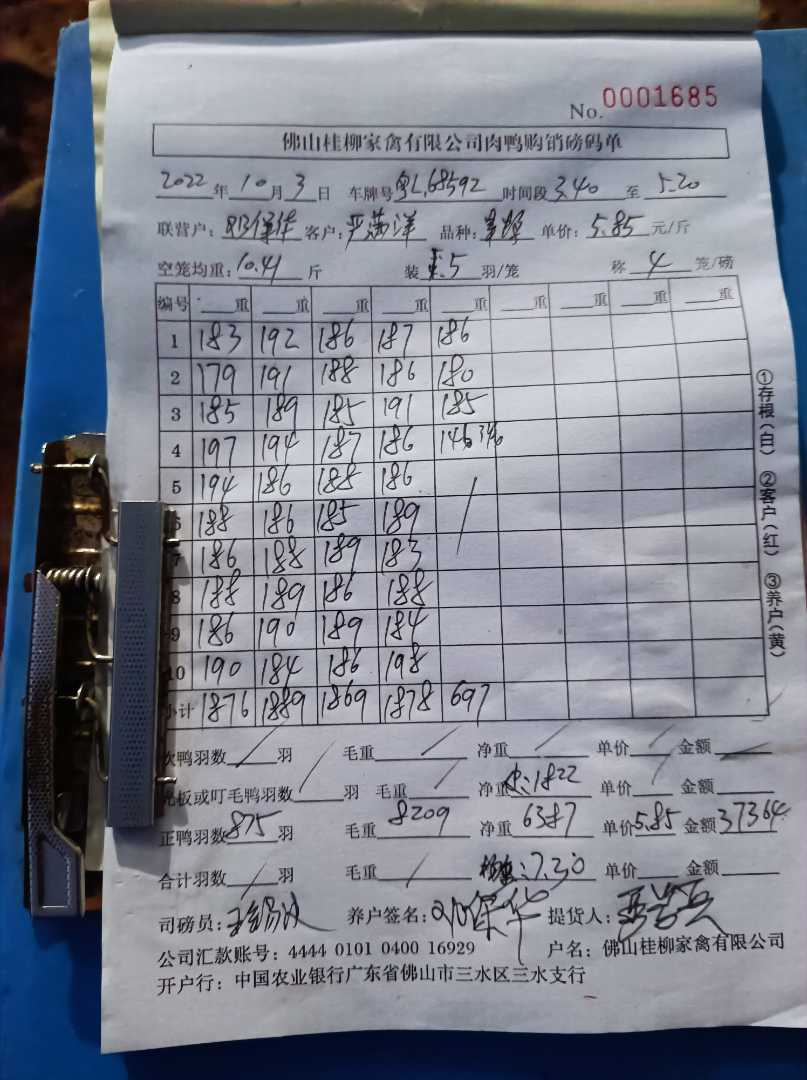 No. 0001685
佛山桂柳家禽有限公司肉鸭购销磅码单
2022年10月3日 车牌号粤L68592 时间段3.40至5.20
联营户：邓保华 客户： 品种： 单价：5.85元/斤
空笼均重：10.41斤 装5羽/笼 称4笼/磅
编号 重 重 重 重 重 重 重 重 重
1 183 192 186 187 186
2 179 191 188 186 180
3 185 189 185 191 185
4 197 194 187 186 146
5 194 186 188 186
6 188 186 185 189
7 186 188 189 183
8 188 189 186 188
9 186 190 189 184
10 190 184 186 198
小计 1876 1889 1869 1878 697
①存根(白) ②客户(红) ③养户(黄)
次鸭羽数 羽 毛重 净重 单价 金额
光板或叮毛鸭羽数 羽 毛重 净重 1822 单价 金额
正鸭羽数875羽 毛重8209 净重6387 单价5.85 金额37364
合计羽数 羽 毛重 净重 7.30 单价 金额
司磅员： 养户签名：邓保华 提货人：
公司汇款账号：4444 0101 0400 16929 户名：佛山桂柳家禽有限公司
开户行：中国农业银行广东省佛山市三水区三水支行